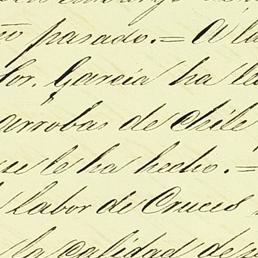 ño pasado.= A la
Sor. Garcia ha te
arrobas de chile
se le ha hecho.=
labor de Cruces
la calidad de